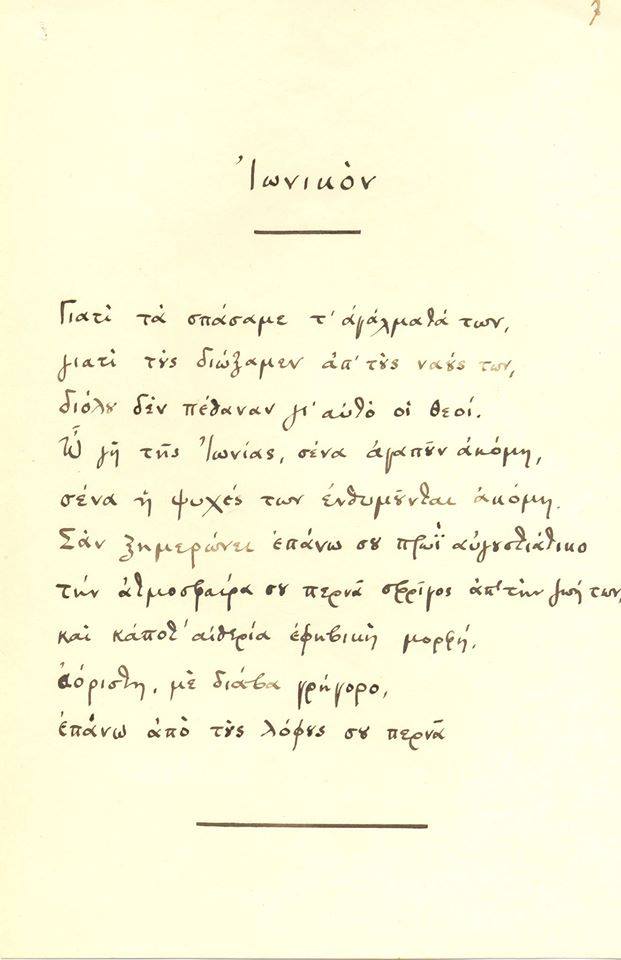 7
Ἰωνικὸν
Γιατὶ τὰ σπάσαμε τ' ἀγάλματά των,
γιατὶ τοὺς διώξαμεν ἀπ' τοὺς ναούς των,
διόλου δὲν πέθαναν γι' αὐτὸ οἱ θεοί.
Ὦ γῆ τῆς Ἰωνίας, σένα ἀγαποῦν ἀκόμη,
σένα ἡ ψυχές των ἐνθυμοῦνται ἀκόμη.
Σὰν ξημερώνει ἐπάνω σου πρωῒ αὐγουστιάτικο
τὴν ἀτμοσφαίρα σου περνᾶ σφρῖγος ἀπ' τὴν ζωή των,
καὶ κάποτ' αἰθερία ἐφηβικὴ μορφή,
ἀόριστη, μὲ διάβα γρήγορο,
ἐπάνω ἀπὸ τοὺς λόφους σου περνᾶ